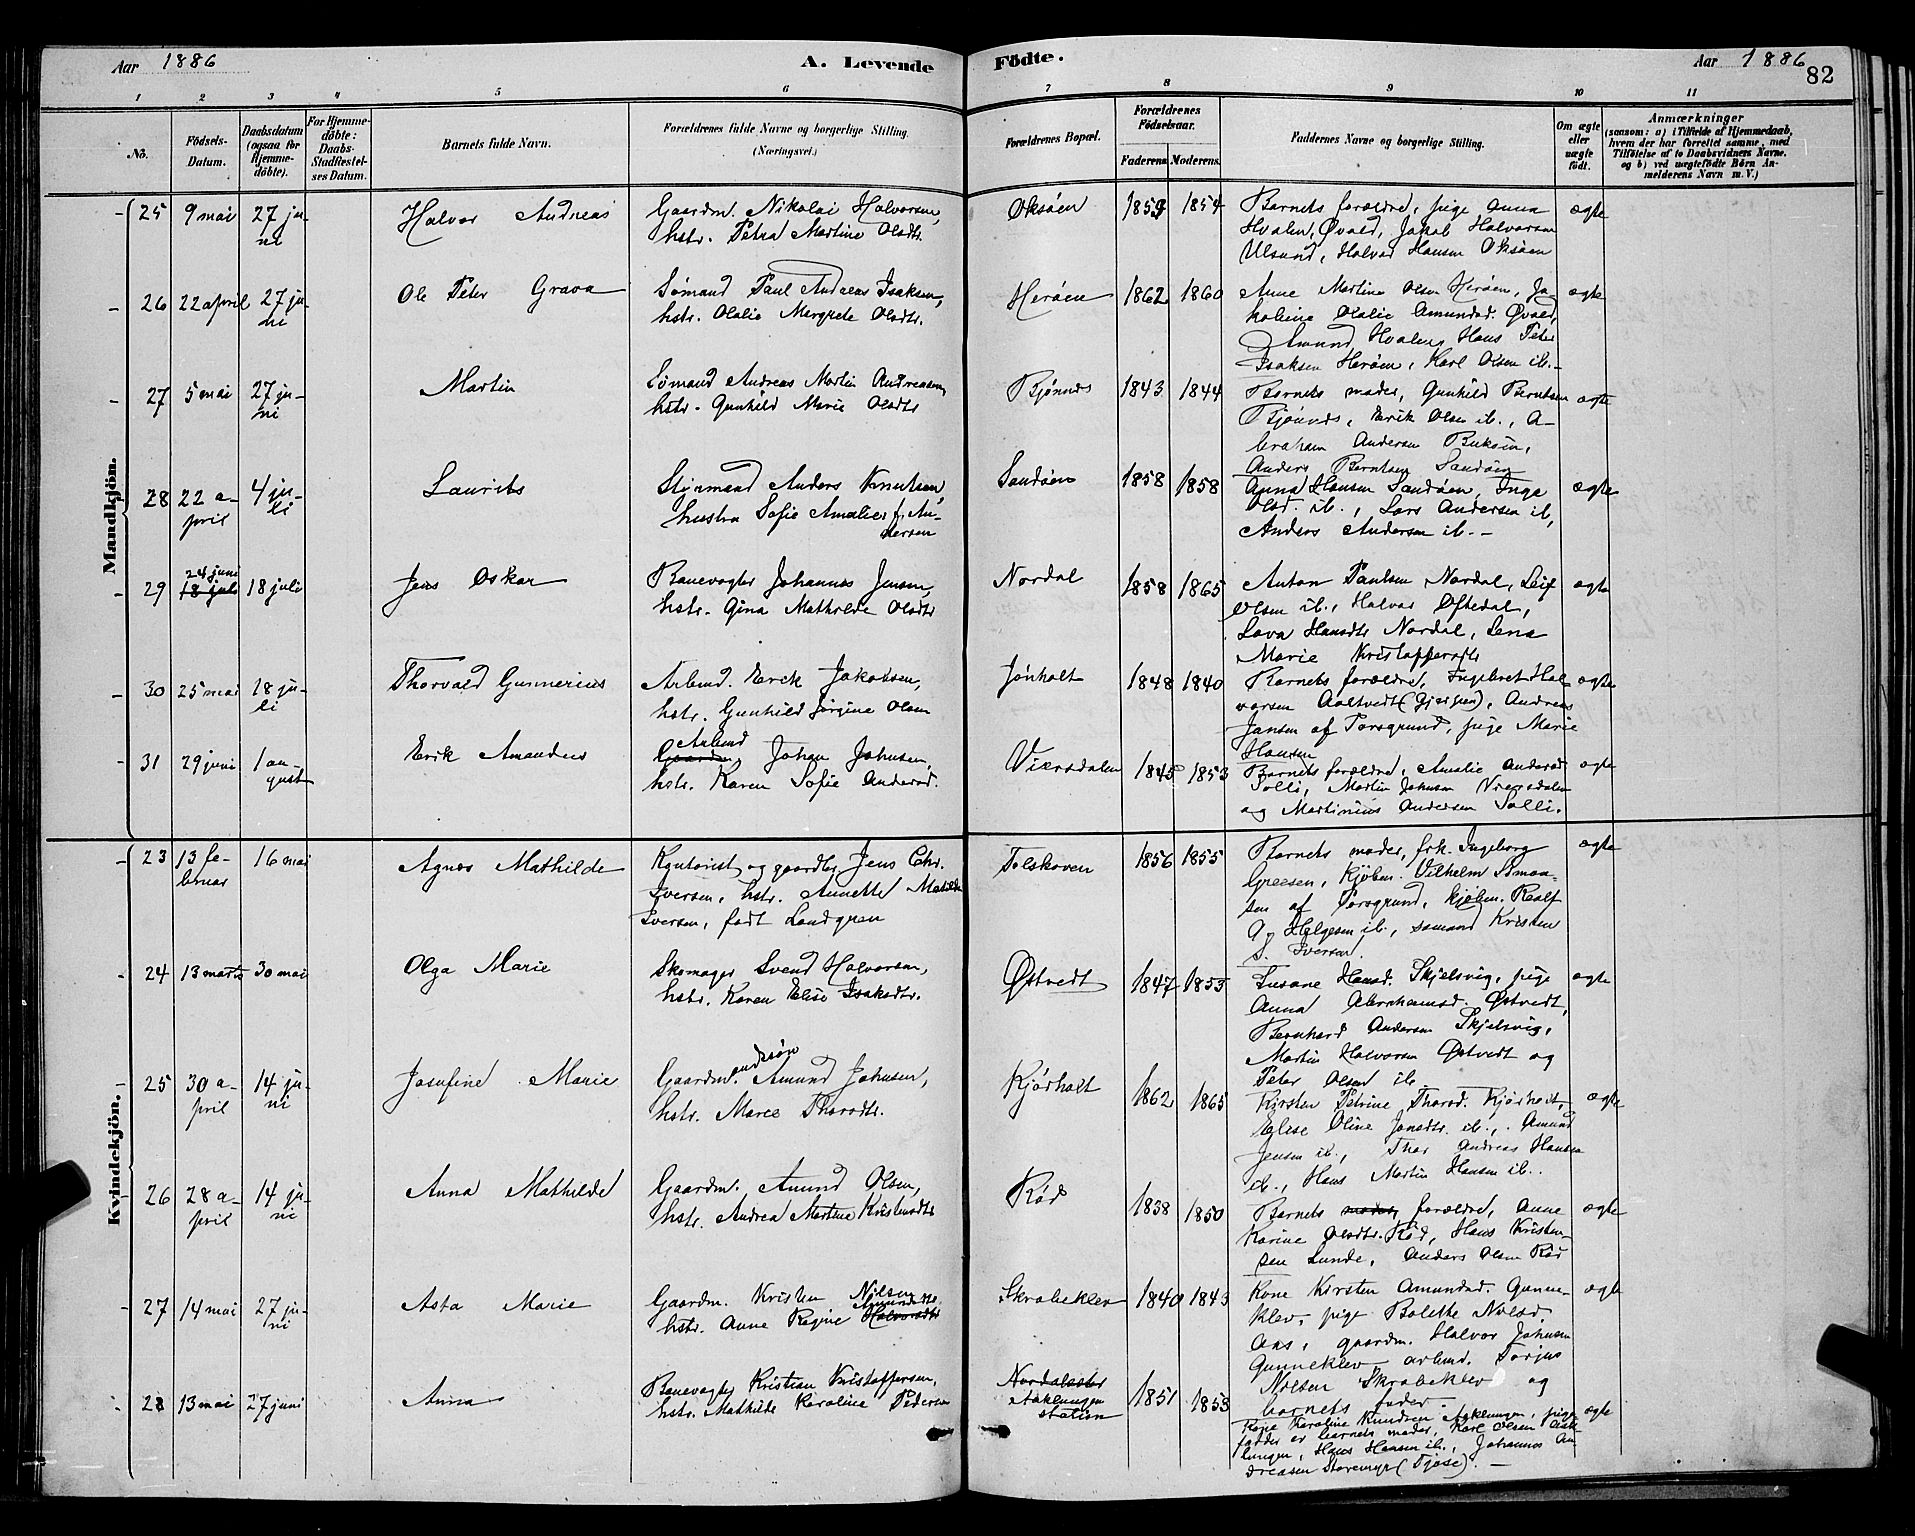 Aar 1886
A. Levende Födte.
Aar 1886
82
1 2 3 4 5 6 7 8 9 10 11
No.
Födsels-
Datum.
Daabsdatum
(ogsaa for
Hjemme-
döbte).
For Hjemme-
döbte:
Daabs-
Stadfæstel-
ses Datum.
Barnets fulde Navn.
Forældrenes fulde Navne og borgerlige Stilling.
(Næringsvei.)
Forældrenes Bopæl.
Forældrenes
Födselsaar.
Faderens. Moderens.
Faddernes Navne og borgerlige Stilling.
Om ægte
eller
uægte
födt.
Anmærkninger
(saasom: a) i Tilfælde af Hjemmedaab,
hvem der har forrettet samme, med
Tilföielse af to Daabsvidners Navne,
og b) ved uægtefödte Börn An-
melderens Navn m. V.)
Mandkjön.
25 9 mai 27 ju-
ni
Halvor Andreas
Gaardm. Nikolai Halvorsen,
hstr. Petra Martine Olsdtr.
Oksøen 1859 1854
Barnets forældre, pige Anna
Hvalen, Øvald, Jakob Halvorsen
Ulsund, Halvor Hansen Oksøen
ægte
26 22 april 27 ju-
ni
Ole Peter Grava
Sømand Paul Andreas Isaksen,
hstr. Olalie Margrete Olsdtr.
Herøen 1862 1860
Anne Martine Olsen Herøen, Ja-
kobine Olalie Amundsd. Øvald,
Amund Hvalen, Hans Peter
Isaksen Herøen, Karl Olsen ib.-
ægte
27 5 mai 27 ju-
ni
Martin
Sømand Andreas Martin Andreasen,
hstr. Gunhild Marie Olsdtr
Bjønnes 1843 1844
Barnets moder, Gunhild Berntsen
Bjønnes, Erik Olsen ib., A-
braham Andersen Buksøen,
Anders Berntsen Sandøen
ægte
28 22 a-
pril
4 ju-
li
Laurits
Styrmand Anders Knutsen,
hustru Sofie Amalie f. An-
dersen
Sandøen 1858 1858
Anna Hansen Sandøen, Inge
Olsd. ib., Lars Andersen ib,
Anders Andersen ib.-
ægte
29 24 juni
18 juli 18 juli
Jens Oskar
Banevogter Johannes Jensen,
hstr. Gina Mathilde Olsdtr
Nordal 1858 1865
Anton Paulsen Nordal, Leif
Olsen ib., Halvor Øftedal,
Lava Hansdtr Nordal, Lena
Marie Kristoffersdtr
ægte
30 25 mai 18 ju-
li
Thorvald Gunnerius
Arbmd. Erik Jakobsen,
hstr. Gunhild Jørgine Olsen
Jønholt 1848 1840
Barnets forældre, Ingebret Hal-
vorsen Aaltvedt (Gjerpen), Andreas
Jansen af Porsgrund, pige Marie
Hansen
ægte
31 29 juni 1 au-
gust
Erik Amandus
Arbmd
Gaardm. Johan Johnsen,
hstr. Karen Sofie Andersd.
Viersdalen 1845 1853
Barnets forældre, Amalie Andersd
Solli, Martin Johnsen Viersdalen
og Martinius Andersen Solli.
ægte
Kvindekjön.
23 13 fe-
bruar
16 mai
Agnes Mathilde
Kontorist og gaardbr. Jens Chr.
Iversen, hstr. Annette Matilde
Iversen, født Landgren
Tolskoven 1856 1855
Barnets moder, frk. Ingeborg
Greesen, kjøbm. Vilhelm Simon-
sen af Porsgrund, kjøbm. Realf
A. Helgesen ib., sømand Kristen
S. Iversen.
ægte
24 13 marts 30 mai
Olga Marie
Skomager Svend Halvorsen,
hstr. Karen Elise Isaksdtr.
Østvedt 1847 1853
Susane Hansd. Skjelsvig, pige
Anna Abrahamsd. Østvedt,
Bernhard Andersen Skjelsvig,
Martin Halvorsen Østvedt og
Peter Olsen ib
ægte
25 30 a-
pril
14 ju-
ni
Josefine Marie
Gaardm.andssøn Amund Johnsen,
hstr. Maree Thorsdtr.
Kjørholt 1862 1865
Kirsten Petrine Thorsd. Kjørholt,
Eglise Oline Jonsdtr. ib., Amund
Jensen ib., Thor Andreas Hansen
ib., Hans Martin Hansen ib..
ægte
26 28 a-
pril
14 ju-
ni
Anna Mathilde
Gaardm. Amund Olsen,
hstr. Andrea Martine Kristensdtr
Rød 1838 1850
Barnets moder, forældre, Anne
Karine Olsdtr. Rød, Hans Kristen-
sen Lunde, Anders Olsen Rød
ægte
27 14 mai 27 ju-
ni
Asta Marie
Gaardm. Kristen Nilsen,
hstr. Anne Regine Halvorsdtr
Amundsdtr
Skrabeklev 1840 1843
Kone Kirsten Amundsd. Gunne-
klev, pige Bolette Nilsd.
Aas, gaardm. Halvor Johnsen
Gunneklev arbmd. Torjus
Nilsen Skrabeklev og
barnets fader.
ægte
28 13 mai 27 juni
Anna
Banevogter Kristian Kristoffersen,
hstr. Mathilde Karoline Pedersen
Nordalseter
Aaklungen
station
1851 1853
Kone Karoline Knudsen Aaklungen, pige
fadder er barnets moder, Karl Olsen Aak-
lungen, Hans Hansen ib., Johannes An-
dreasen Storemyr (Tjøse).-
ægte